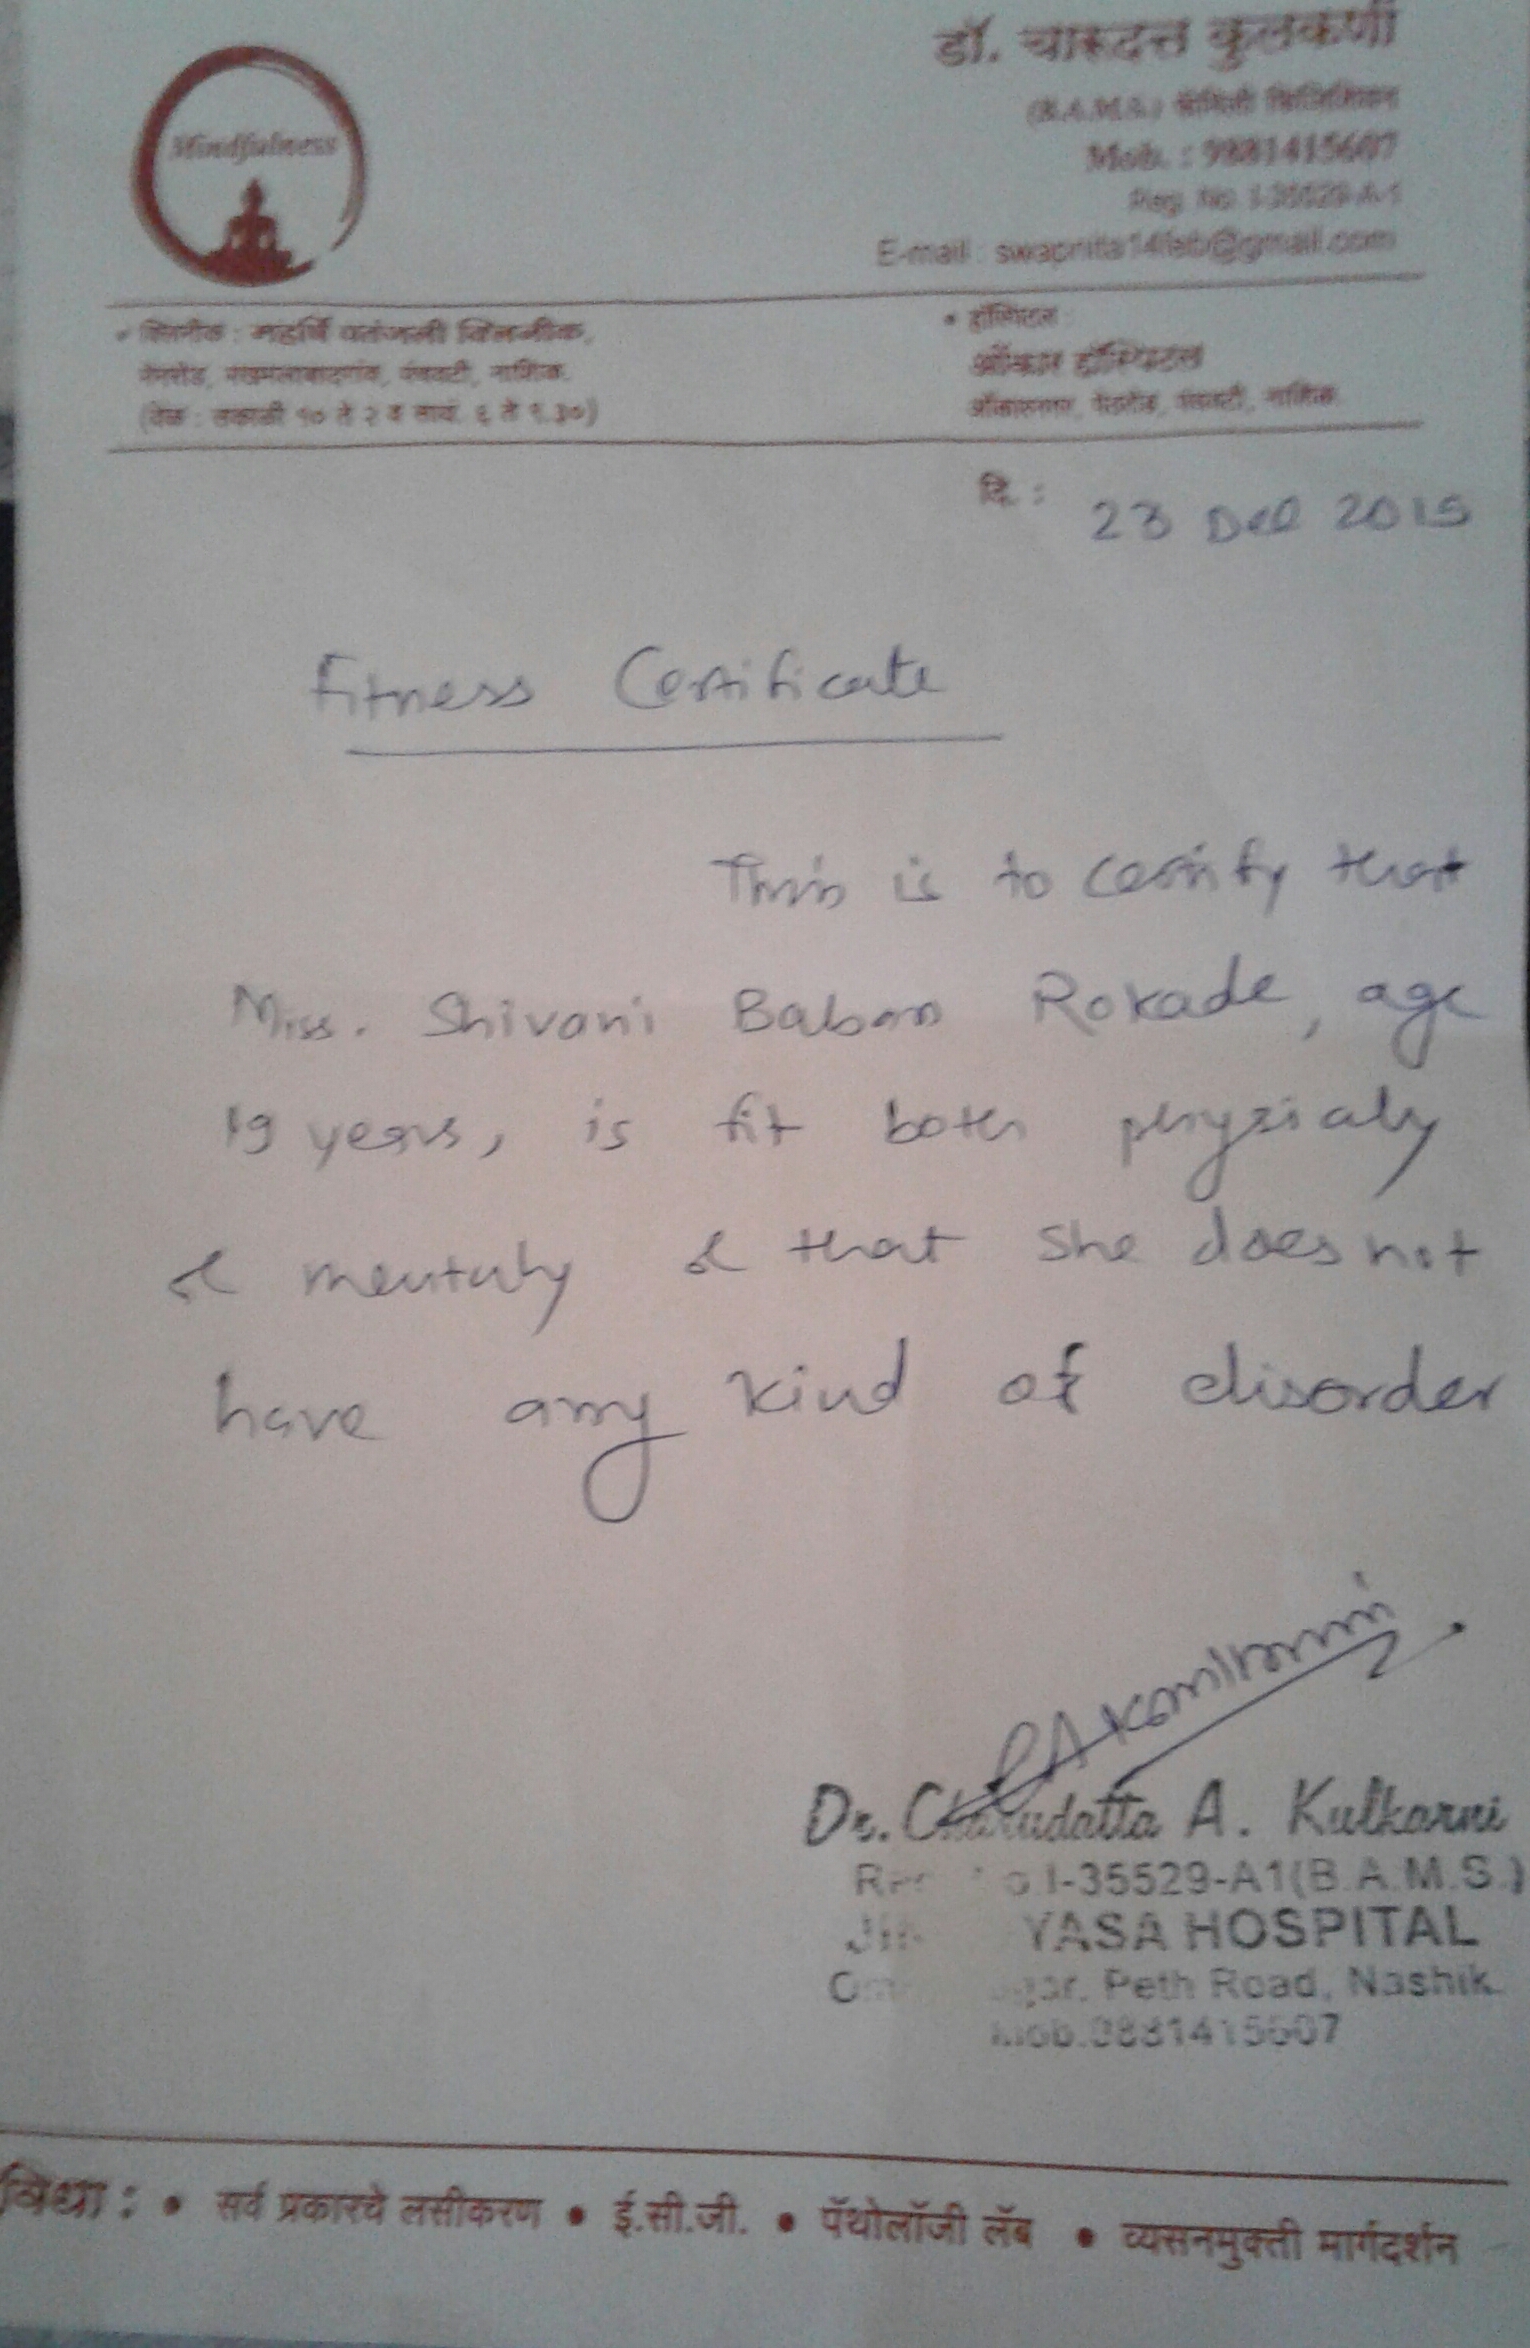 Mindfulness
डॉ. चारूदत्त कुलकर्णी
(B.A.M.S.) फॅमिली फिजिशियन
Mob. : 9881415607
Reg. No. I-35529-A-1
E-mail : swapnita14feb@gmail.com
क्लिनीक : महर्षि पतंजली क्लिनीक,
पेठरोड, मखमलाबादगांव, पंचवटी, नाशिक.
(वेळ : सकाळी १० ते २ व सायं. ६ ते ९.३०)
• हॉस्पिटल :
ओंकार हॉस्पिटल
ओंकारनगर, पेठरोड, पंचवटी, नाशिक.
दि. : 23 Dec 2015
Fitness Certificate
This is to certify that
Miss. Shivani Baban Rokade, age
19 years, is fit both physicaly
& mentaly & that she does not
have any kind of disorder
Dr. Charudatta A. Kulkarni
I-35529-A1(B.A.M.S.)
HOSPITAL
Peth Road, Nashik.
Mob.9881415607
• सर्व प्रकारचे लसीकरण • ई.सी.जी. • पॅथोलॉजी लॅब • व्यसनमुक्ती मार्गदर्शन